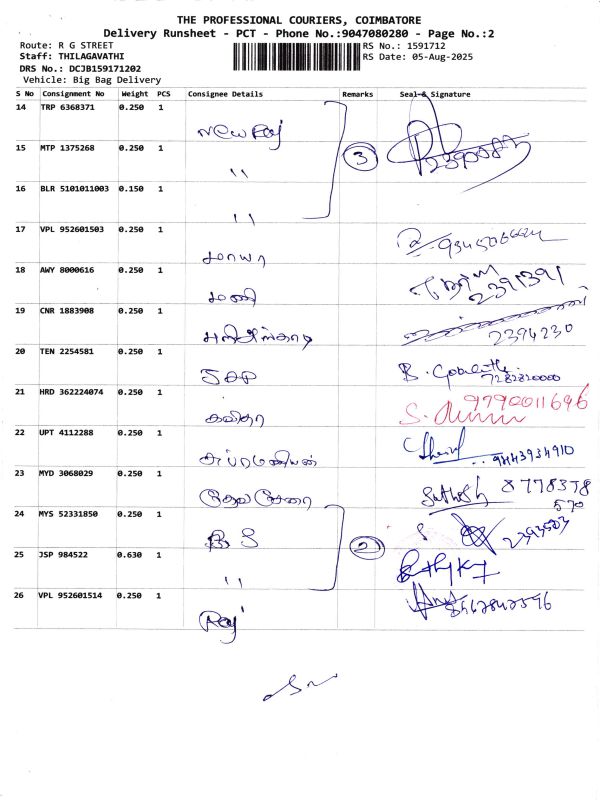 THE PROFESSIONAL COURIERS, COIMBATORE
Delivery Runsheet - PCT - Phone No.:9047080280 - Page No.:2
Route: R G STREET
RS No.: 1591712
Staff: THILAGAVATHI
RS Date: 05-Aug-2025
DRS No.: DCJB159171202
Vehicle: Big Bag Delivery
S No Consignment No Weight PCS Consignee Details Remarks Seal & Signature
14 TRP 6368371 0.250 1
New Raj
15 MTP 1375268 0.250 1
"
3
2390083
16 BLR 5101011003 0.150 1
"
17 VPL 952601503 0.250 1
மாயா
18 AWY 8000616 0.250 1
மணி
2391391
19 CNR 1883908 0.250 1
2394230
20 TEN 2254581 0.250 1
7282820000
21 HRD 362224074 0.250 1
கவிதா
9790011696
22 UPT 4112288 0.250 1
சுப்ரமணியன்
9443934910
23 MYD 3068029 0.250 1
Sathosh 8778378
570
24 MYS 52331850 0.250 1
S
2
2393503
25 JSP 984522 0.630 1
"
26 VPL 952601514 0.250 1
Raj